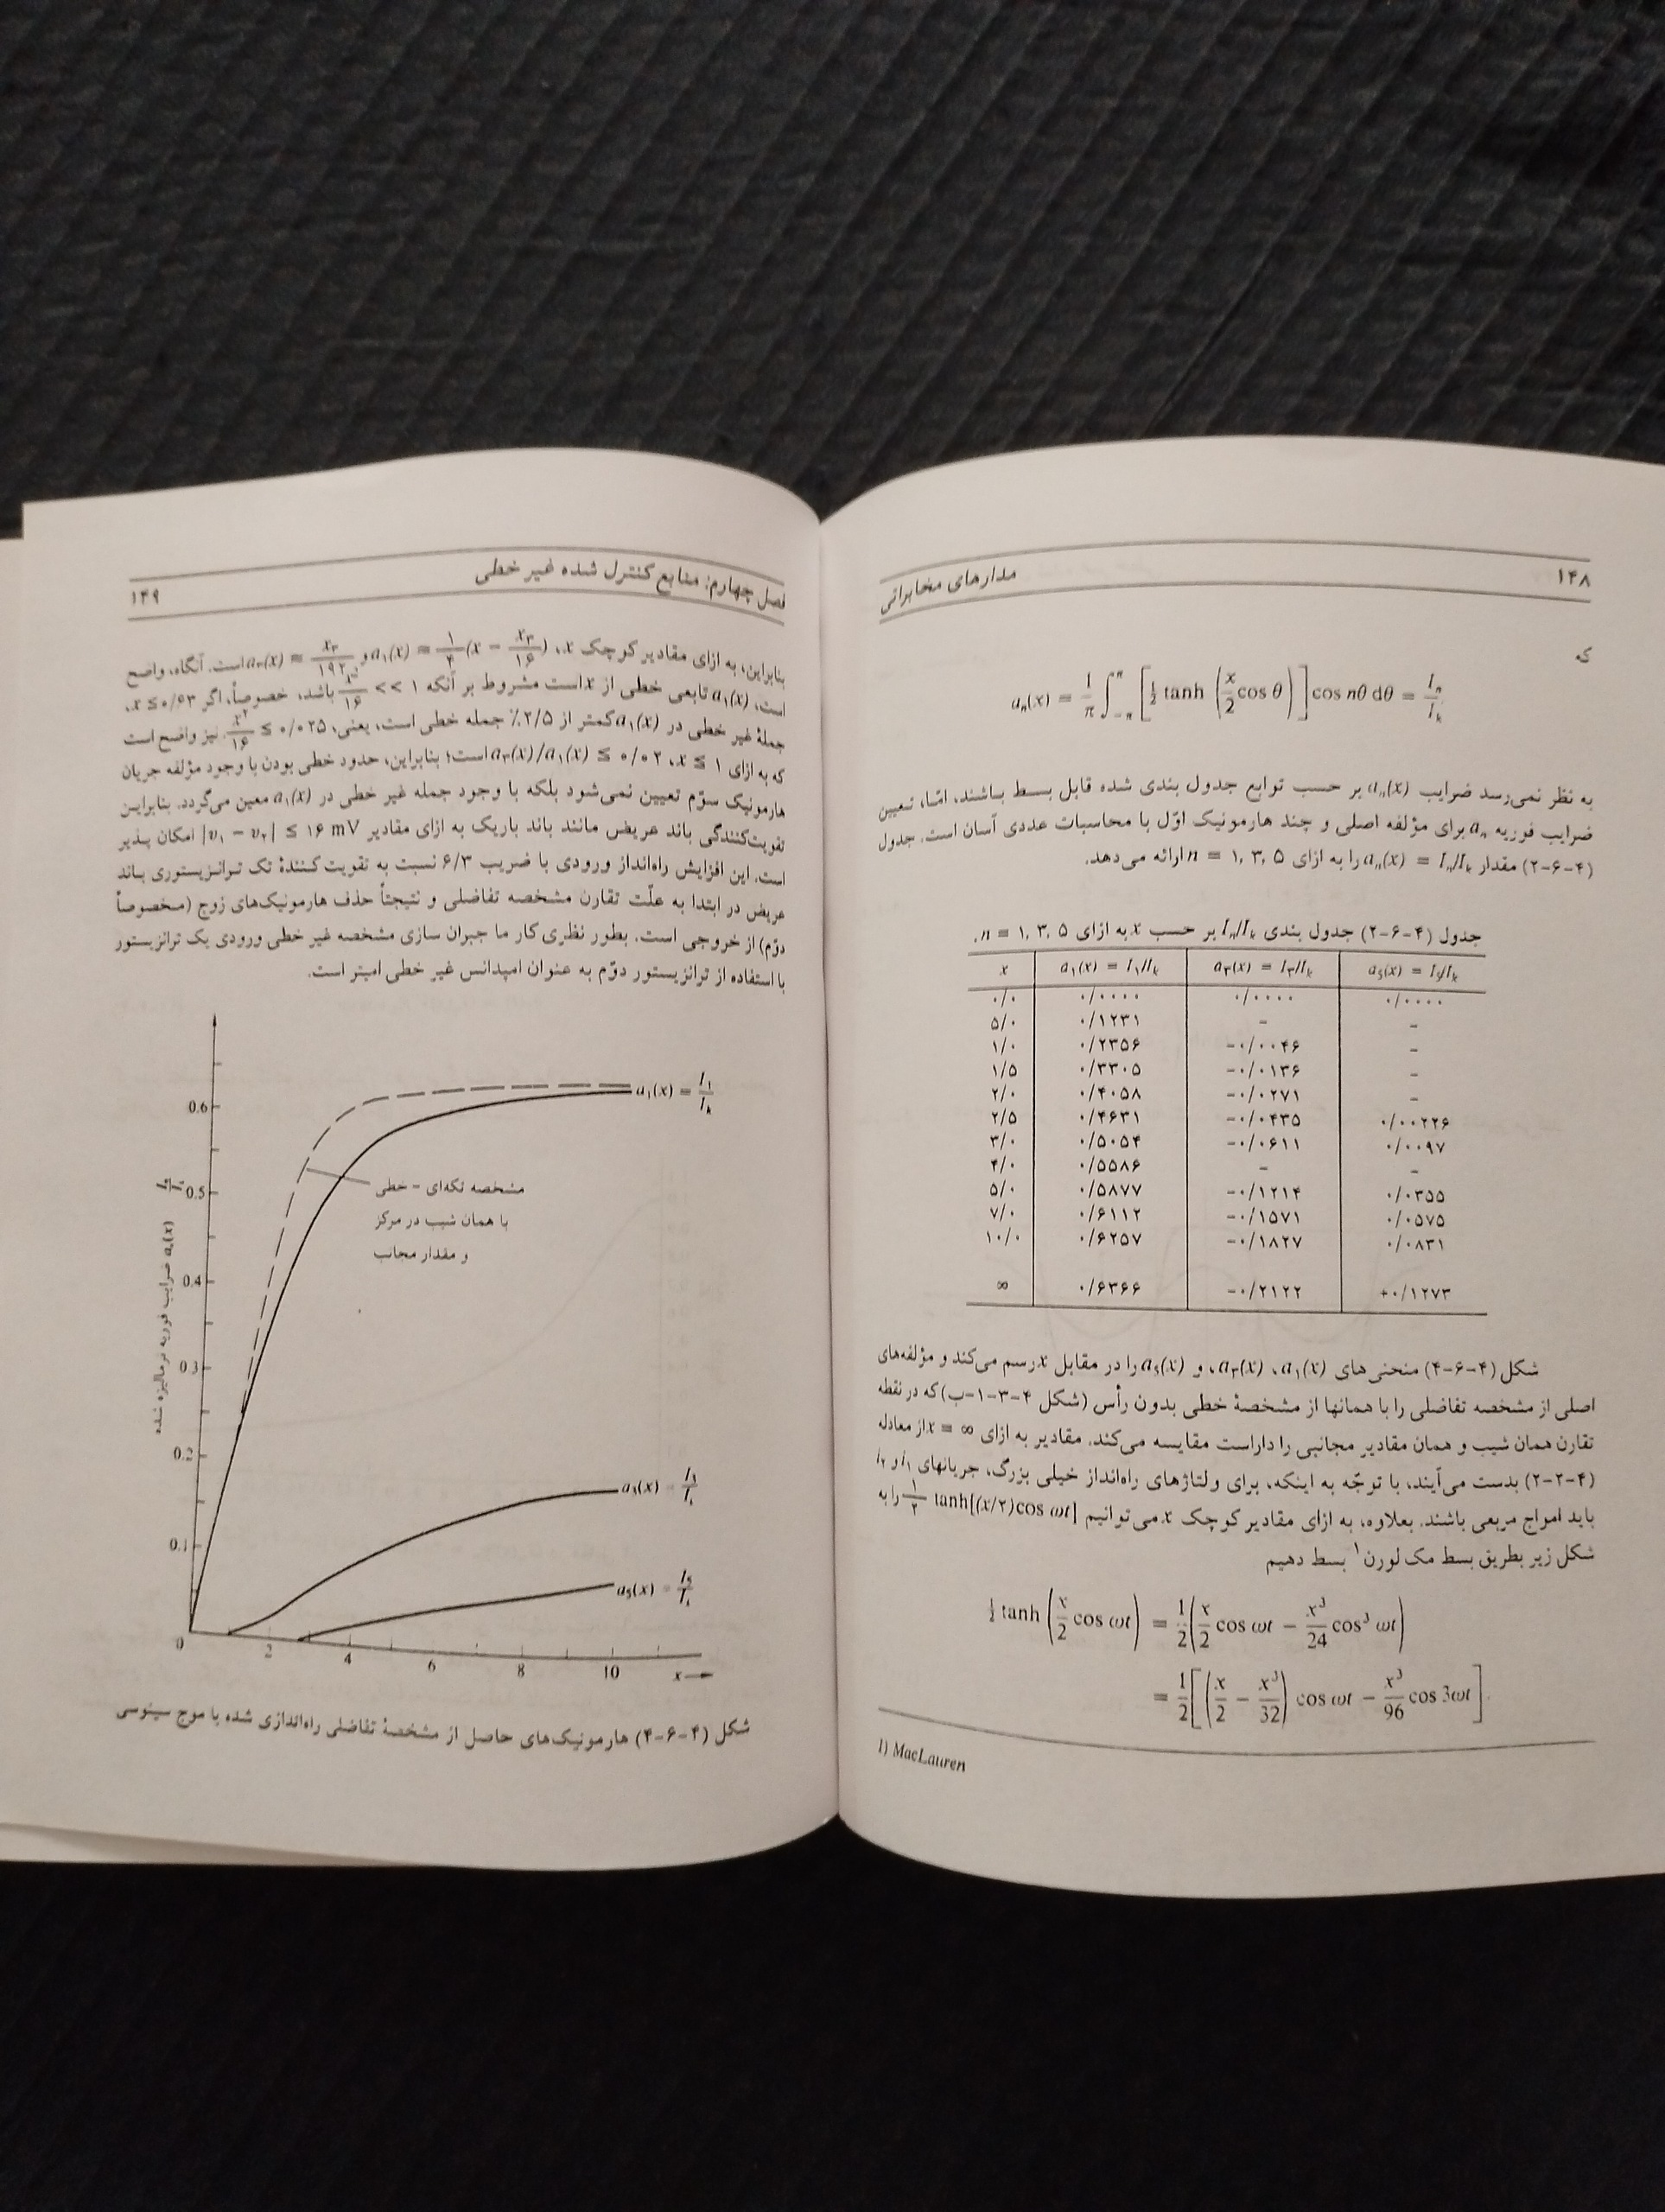 ۱۴۸
مدارهای مخابراتی
که
aₙ(x) = 1/π ∫₋π^π [½ tanh (x/2 cos θ)] cos nθ dθ = Iₙ/Iₖ
به نظر نمی‌رسد ضرایب aₙ(x) بر حسب توابع جدول بندی شده قابل بسط باشند، امّا، تعیین
ضرایب فوریه aₙ برای مؤلفه اصلی و چند هارمونیک اوّل با محاسبات عددی آسان است. جدول
(۴-۶-۲) مقدار aₙ(x) = Iₙ/Iₖ را به ازای n = ۱, ۳, ۵ ارائه می‌دهد.
جدول (۴-۶-۲) جدول بندی Iₙ/Iₖ بر حسب x به ازای n = ۱, ۳, ۵.
x a۱(x) = I۱/Iₖ a۳(x) = I۳/Iₖ a₅(x) = I₅/Iₖ
۰/۰ ۰/۰۰۰۰ ۰/۰۰۰۰ ۰/۰۰۰۰
۵/۰ ۰/۱۲۳۱ – –
۱/۰ ۰/۲۳۵۶ –۰/۰۰۴۶ –
۱/۵ ۰/۳۳۰۵ –۰/۰۱۳۶ –
۲/۰ ۰/۴۰۵۸ –۰/۰۲۷۱ –
۲/۵ ۰/۴۶۳۱ –۰/۰۴۳۵ ۰/۰۰۲۲۶
۳/۰ ۰/۵۰۵۴ –۰/۰۶۱۱ ۰/۰۰۹۷
۴/۰ ۰/۵۵۸۶ – –
۵/۰ ۰/۵۸۷۷ –۰/۱۲۱۴ ۰/۰۳۵۵
۷/۰ ۰/۶۱۱۲ –۰/۱۵۷۱ ۰/۰۵۷۵
۱۰/۰ ۰/۶۲۵۷ –۰/۱۸۲۷ ۰/۰۸۳۱
∞ ۰/۶۳۶۶ –۰/۲۱۲۲ +۰/۱۲۷۳
شکل (۴-۶-۴) منحنی های a۱(x)، a۳(x)، و a₅(x) را در مقابل x رسم می‌کند و مؤلفه‌های
اصلی از مشخصه تفاضلی را با همانها از مشخصهٔ خطی بدون رأس (شکل ۴-۳-۱-ب) که در نقطه
تقارن همان شیب و همان مقادیر مجانبی را داراست مقایسه می‌کند. مقادیر به ازای x = ∞ از معادله
(۴-۲-۲) بدست می‌آیند، با توجّه به اینکه، برای ولتاژهای راه‌انداز خیلی بزرگ، جریانهای i۱ و i۲
باید امواج مربعی باشند. بعلاوه، به ازای مقادیر کوچک x می‌توانیم ۱/۲ tanh[(x/۲)cos ωt] را به
شکل زیر بطریق بسط مک لورن۱ بسط دهیم
½ tanh (x/2 cos ωt) = 1/2 (x/2 cos ωt − x³/24 cos³ ωt)
= 1/2 [(x/2 − x³/32) cos ωt − x³/96 cos 3ωt].
1) MacLauren
فصل چهارم: منابع کنترل شده غیر خطی
۱۴۹
بنابراین، به ازای مقادیر کوچک x، a۱(x) ≈ ۱/۴ (x − x۳/۱۶) و a۳(x) ≈ x۳/۱۹۲ است. آنگاه، واضح
است، a۱(x) تابعی خطی از x است مشروط بر آنکه ۱ >> x۲/۱۶ باشد، خصوصاً، اگر x ≤ ۰/۶۳،
جملهٔ غیر خطی در a۱(x) کمتر از ۲/۵٪ جمله خطی است، یعنی، x۲/۱۶ ≤ ۰/۰۲۵. نیز واضح است
که به ازای x ≤ ۱، a۳(x)/a۱(x) ≤ ۰/۰۲ است؛ بنابراین، حدود خطی بودن با وجود مؤلفه جریان
هارمونیک سوّم تعیین نمی‌شود بلکه با وجود جمله غیر خطی در a۱(x) معین می‌گردد. بنابراین
تقویت‌کنندگی باند عریض مانند باند باریک به ازای مقادیر |v۱ − v۲| ≤ ۱۶ mV امکان پذیر
است. این افزایش راه‌انداز ورودی با ضریب ۶/۳ نسبت به تقویت کنندهٔ تک ترانزیستوری باند
عریض در ابتدا به علّت تقارن مشخصه تفاضلی و نتیجتاً حذف هارمونیک‌های زوج (مخصوصاً
دوّم) از خروجی است. بطور نظری کار ما جبران سازی مشخصه غیر خطی ورودی یک ترانزیستور
با استفاده از ترانزیستور دوّم به عنوان امپدانس غیر خطی امیتر است.
a₁(x) = I₁/Iₖ
0.6
مشخصه تکه‌ای - خطی
0.5
با همان شیب در مرکز
و مقدار مجانب
ضرایب فوریه نرمالیزه شده
0.4
0.3
0.2
a₃(x) =
0.1
a₅(x) =
0 2 4 6 8 10 x→
شکل (۴-۶-۴) هارمونیک‌های حاصل از مشخصهٔ تفاضلی راه‌اندازی شده با موج سینوسی